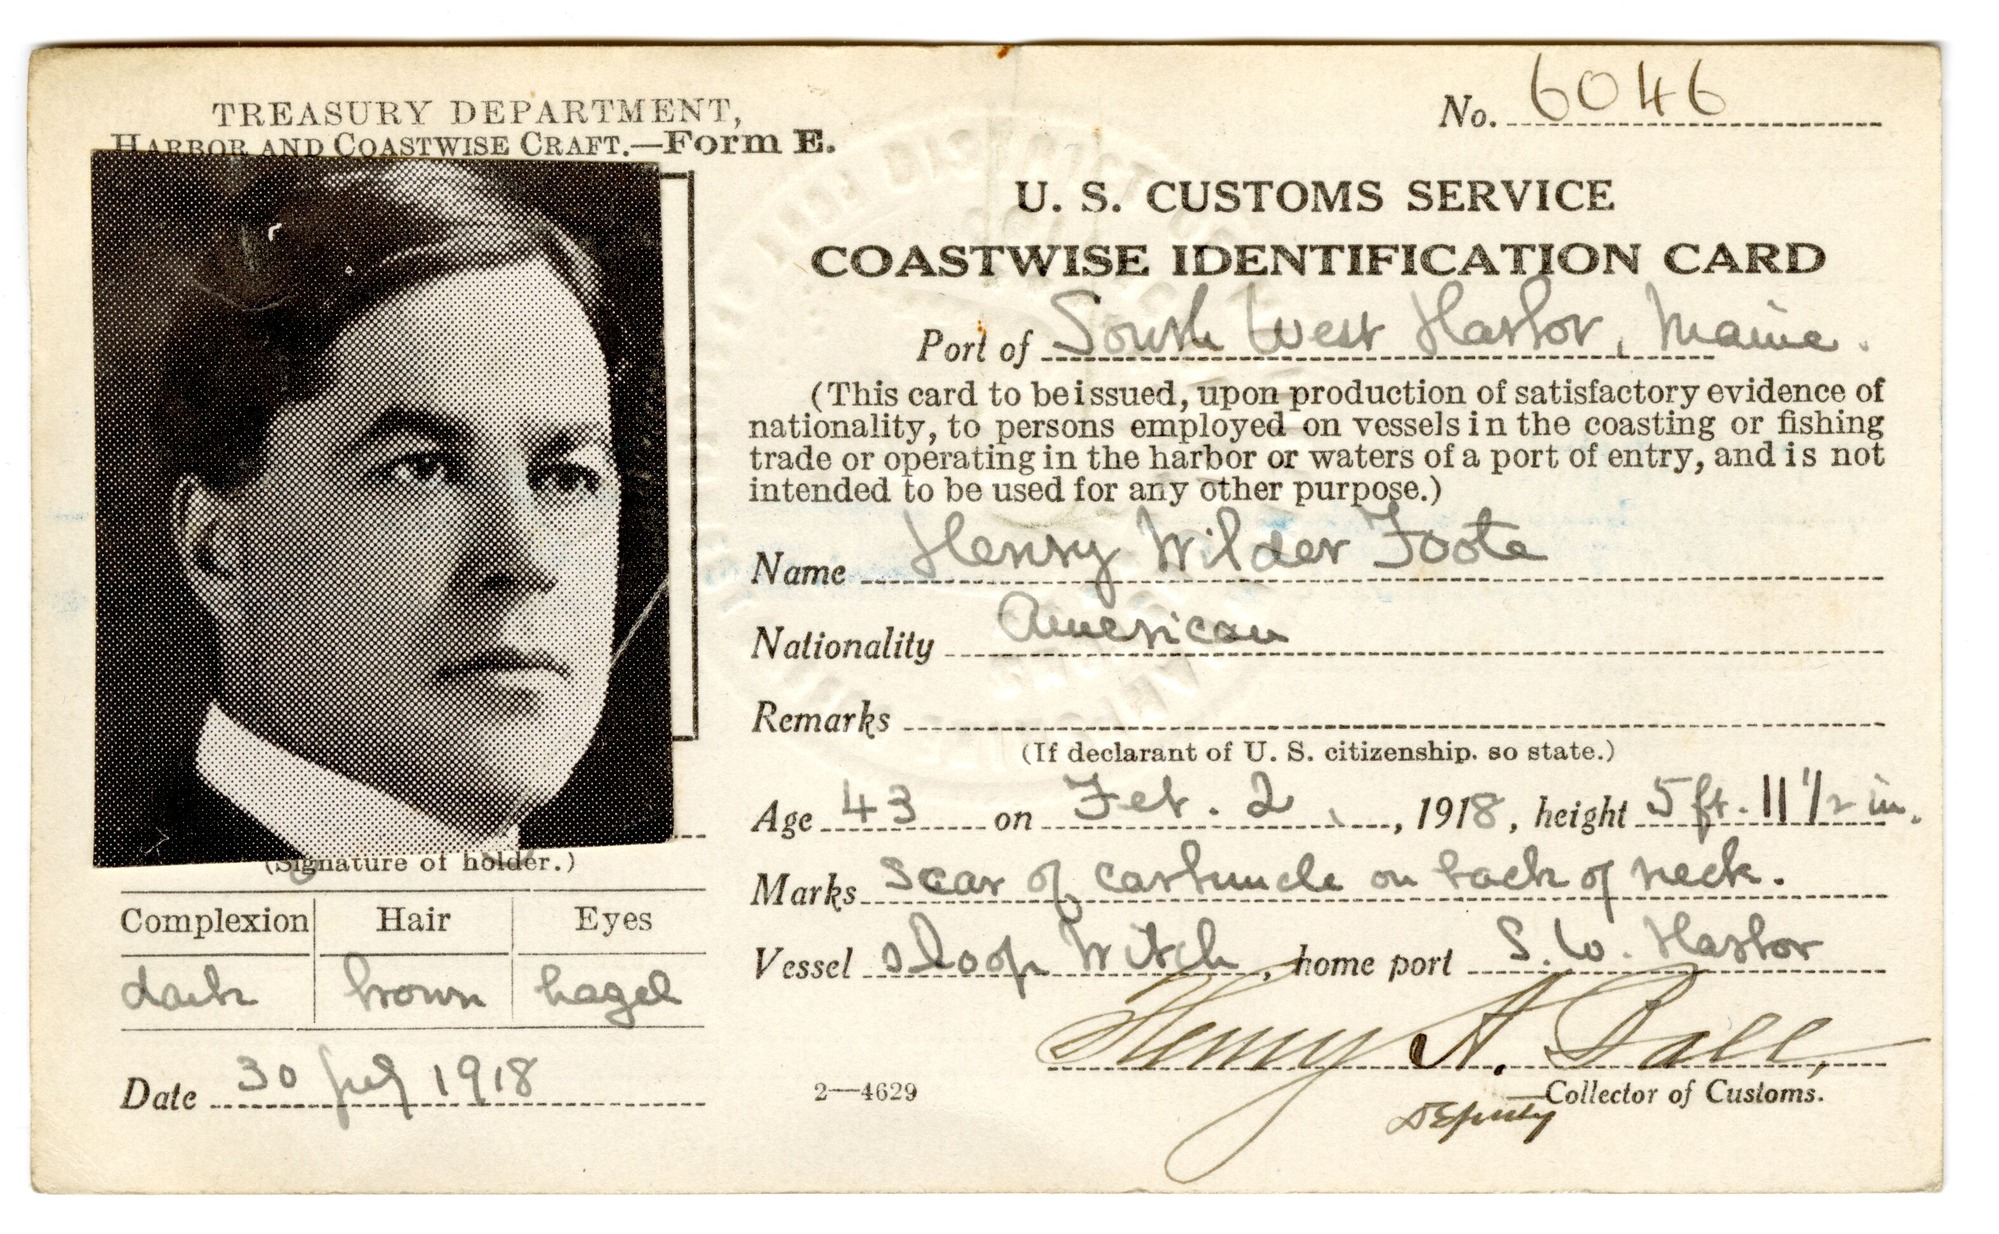 TREASURY DEPARTMENT,
HARBOR AND COASTWISE CRAFT.—Form E.
No. 6046
U. S. CUSTOMS SERVICE
COASTWISE IDENTIFICATION CARD
Port of South West Harbor, Maine.
(This card to be issued, upon production of satisfactory evidence of
nationality, to persons employed on vessels in the coasting or fishing
trade or operating in the harbor or waters of a port of entry, and is not
intended to be used for any other purpose.)
Name Henry Wilder Foote
Nationality American
Remarks
(If declarant of U. S. citizenship, so state.)
Age 43 on Feb. 2, 1918, height 5 ft. 11 1/2 in.
Marks Scar of carbuncle on back of neck.
Vessel sloop Witch, home port S. W. Harbor
Henry A. Ball,
Deputy Collector of Customs.
2—4629
(Signature of holder.)
Complexion Hair Eyes
dark brown hazel
Date 30 July 1918